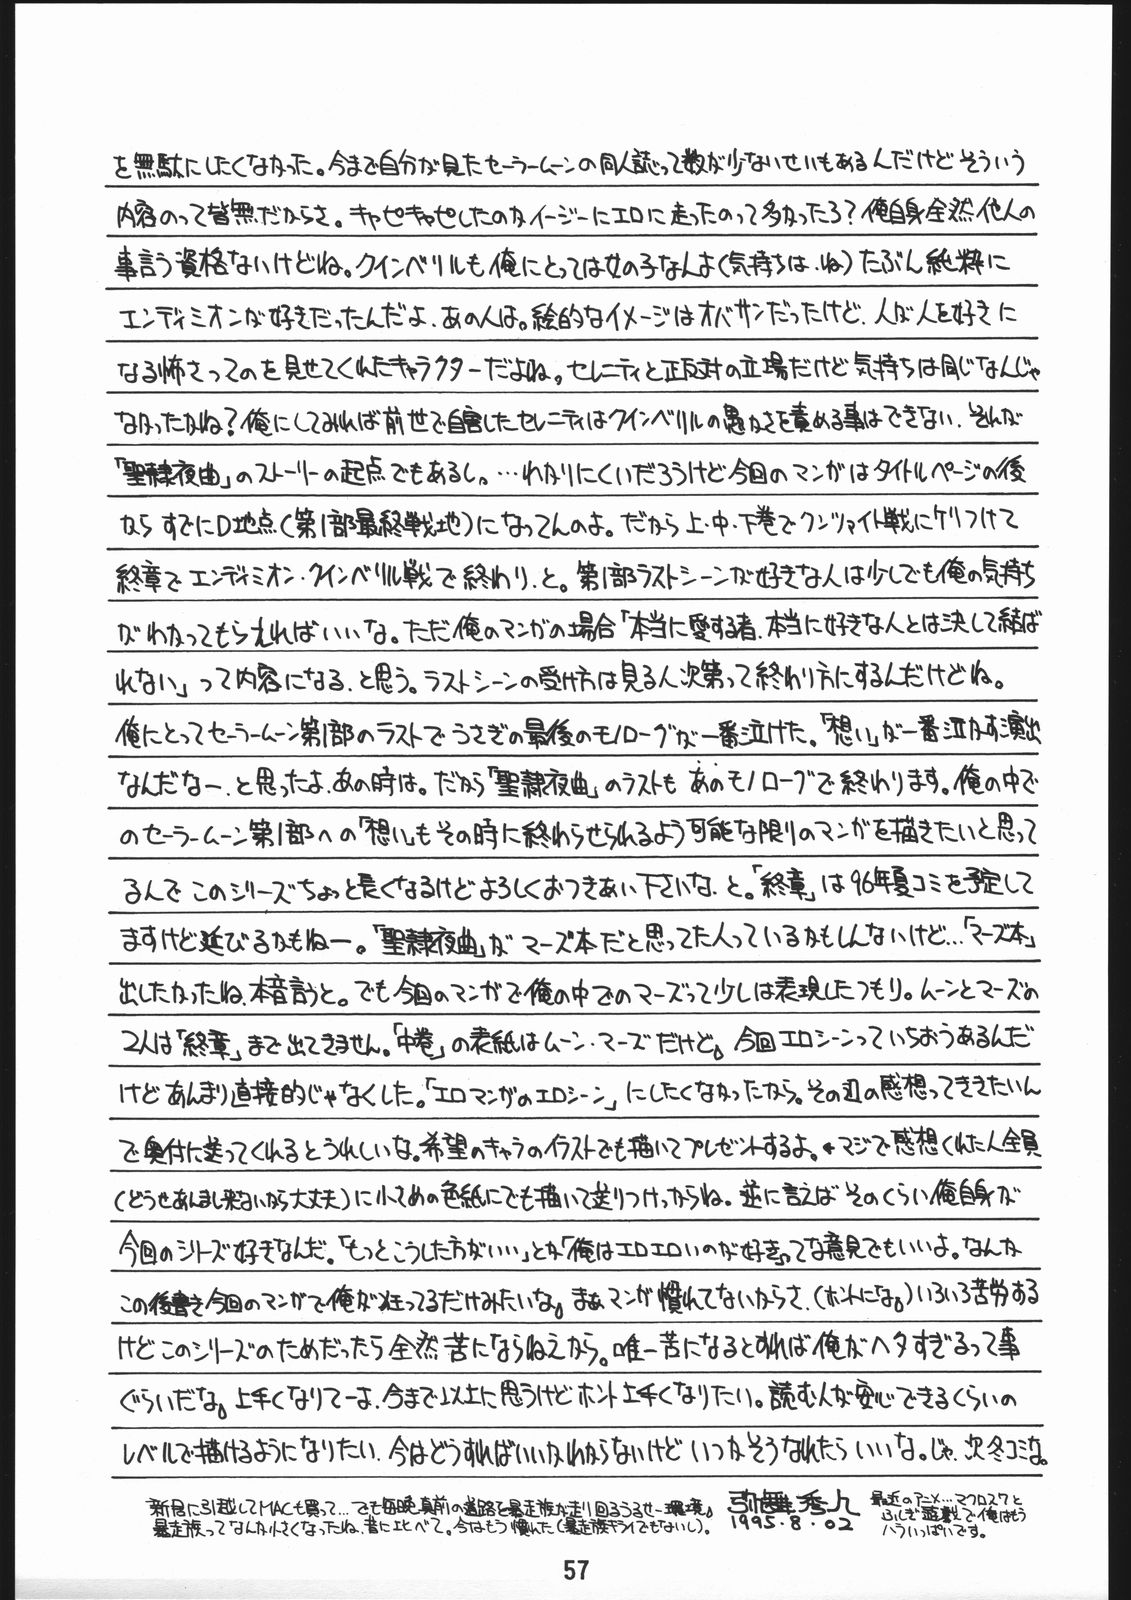 を無駄にしたくなかった。今まで自分が見たセーラームーンの同人誌って数が少ないせいもあるんだけどそういう
内容のって皆無だからさ。キャピキャピしたのかイージーにエロに走ったのって多かったろ?俺自身全然他人の
事言う資格ないけどね。クインベリルも俺にとっては女の子なんよ(気持ちは、ね)たぶん純粋に
エンディミオンが好きだったんだよ、あの人は。絵的なイメージはオバサンだったけど、人が人を好きに
なる怖さってのを見せてくれたキャラクターだよね。セレニティと正反対の立場だけど気持ちは同じなんじゃ
なかったかね?俺にしてみれば前世で自害したセレニティはクインベリルの愚かさを責める事はできない、それが
「聖隷夜曲」のストーリーの起点でもあるし。…わかりにくいだろうけど今回のマンガはタイトルページの後
ならすでにD地点(第1部最終戦地)になってんのよ。だから上・中・下巻でクンツァイト戦にケリつけて
終章でエンディミオン・クインベリル戦で終わり、と。第1部ラストシーンが好きな人は少しでも俺の気持ち
がわかってもらえればいいな。ただ俺のマンガの場合「本当に愛する者、本当に好きな人とは決して結ば
れない」って内容になる、と思う。ラストシーンの受け方は見る人次第って終わり方にするんだけどね。
俺にとってセーラームーン第1部のラストでうさぎの最後のモノローグが一番泣けた。「想い」が一番泣かす演出
なんだなー、と思ったよ、あの時は。だから「聖隷夜曲」のラストもあのモノローグで終わります。俺の中で
のセーラームーン第1部への「想い」もその時に終わらせられるよう可能な限りのマンガを描きたいと思って
るんでこのシリーズちょっと長くなるけどよろしくおつきあい下さいな、と。「終章」は96年夏コミを予定して
ますけど延びるかもねー。「聖隷夜曲」がマーズ本だと思ってた人っているかもしんないけど…「マーズ本」
出したかったね、本音言うと。でも今回のマンガで俺の中でのマーズって少しは表現したつもり。ムーンとマーズの
2人は「終章」まで出てきません。「中巻」の表紙はムーン・マーズだけど。今回エロシーンっていちおうあるんだ
けどあんまり直接的じゃなくした。「エロマンガのエロシーン」にしたくなかったから。その辺の感想ってききたいん
で奥付に送ってくれるとうれしいな。希望のキャラのイラストでも描いてプレゼントするよ。←マジで感想くれた人全員
(どうせあんまし来ないから大丈夫)に小さめの色紙にでも描いて送りつけっからね。逆に言えばそのくらい俺自身が
今回のシリーズ好きなんだ。「もっとこうした方がいい」とか「俺はエロエロいのが好き」ってな意見でもいいよ。なんか
この後書き今回のマンガで俺が狂ってるだけみたいな。まぁマンガ慣れてないからさ、(ホントにな。)いろいろ苦労する
けどこのシリーズのためだったら全然苦にならねえから。唯一苦になるとすれば俺がヘタすぎるって事
ぐらいだな。上手くなりてーよ、今まで以上に思うけどホント上手くなりたい。読む人が安心できるくらいの
レベルで描けるようになりたい、今はどうすればいいかわからないけどいつかそうなれたらいいな。じゃ、次冬コミな。
新居に引越してMACも買って…でも毎晩真前の道路を暴走族が走り回るうるせー環境。
暴走族ってなんか小さくなったね、昔に比べて。今はもう慣れた(暴走族キライでもないし)。
弥舞秀人
1995.8.02
最近のアニメ…マクロス7と
ふしぎ遊戯で俺はもう
ハラいっぱいです。
57